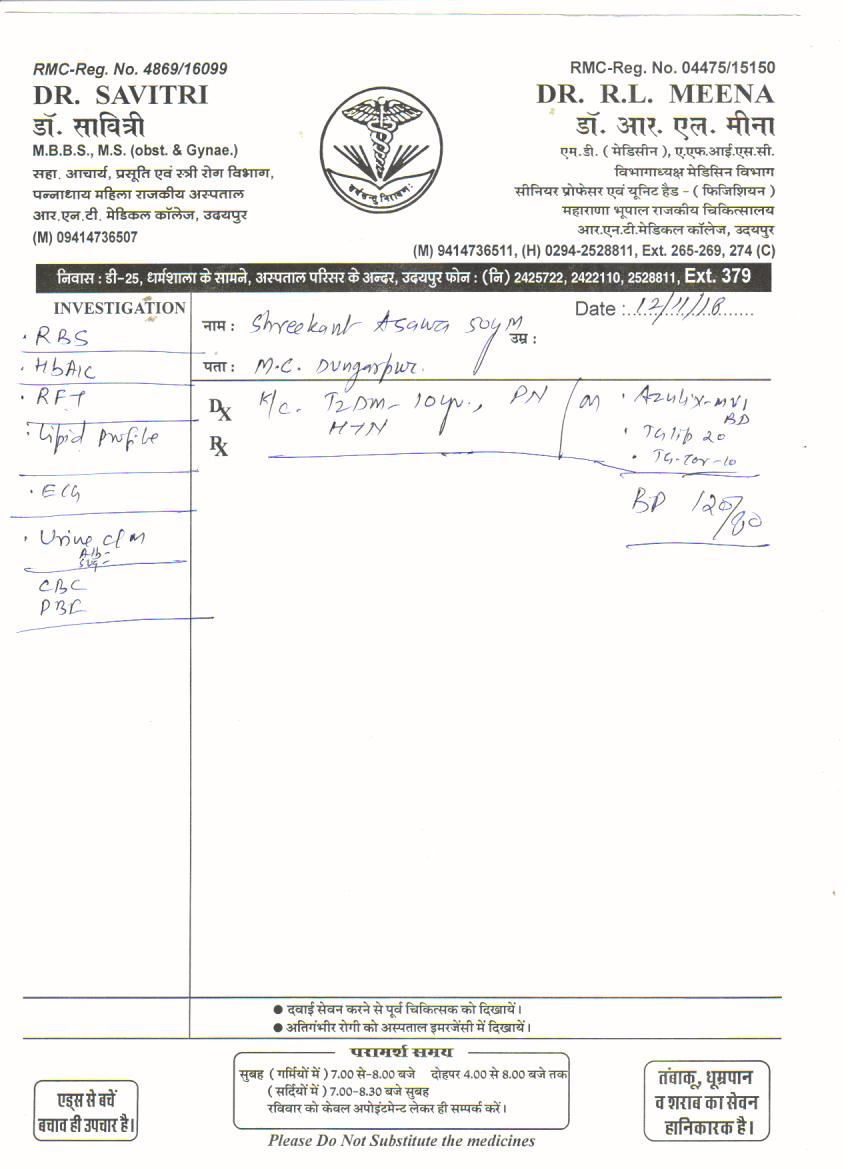 RMC-Reg. No. 4869/16099
DR. SAVITRI
डॉ. सावित्री
M.B.B.S., M.S. (obst. & Gynae.)
सहा. आचार्य, प्रसूति एवं स्त्री रोग विभाग,
पन्नाधाय महिला राजकीय अस्पताल
आर.एन.टी. मेडिकल कॉलेज, उदयपुर
(M) 09414736507
RMC-Reg. No. 04475/15150
DR. R.L. MEENA
डॉ. आर. एल. मीना
एम.डी. ( मेडिसीन ), ए.एफ.आई.एस.सी.
विभागाध्यक्ष मेडिसिन विभाग
सीनियर प्रोफेसर एवं यूनिट हैड - ( फिजिशियन )
महाराणा भूपाल राजकीय चिकित्सालय
आर.एन.टी.मेडिकल कॉलेज, उदयपुर
(M) 9414736511, (H) 0294-2528811, Ext. 265-269, 274 (C)
निवास : डी-25, धर्मशाला के सामने, अस्पताल परिसर के अन्दर, उदयपुर फोन : (नि) 2425722, 2422110, 2528811, Ext. 379
INVESTIGATION
. RBS
. HbA1C
. RFT
. Lipid Profile
. ECG
. Urine C/M
Alb-
Sug-
CBC
PBF
Date : 12/11/18
नाम : Shreekant Asawa 50y M
उम्र :
पता : M.C. Dungarpur.
Dx K/c. T2DM - 10 yr., PN / on
HTN
Rx
. Azulix-MV1
BD
. TGlip 20
. TG-Tor-10
BP 120/80
● दवाई सेवन करने से पूर्व चिकित्सक को दिखायें।
● अतिगंभीर रोगी को अस्पताल इमरजेंसी में दिखायें।
परामर्श समय
सुबह ( गर्मियों में ) 7.00 से-8.00 बजे दोहपर 4.00 से 8.00 बजे तक
( सर्दियों में ) 7.00-8.30 बजे सुबह
रविवार को केवल अपोइंटमेन्ट लेकर ही सम्पर्क करें।
Please Do Not Substitute the medicines
एड्स से बचें
बचाव ही उपचार है।
तंबाकू, धूम्रपान
व शराब का सेवन
हानिकारक है।